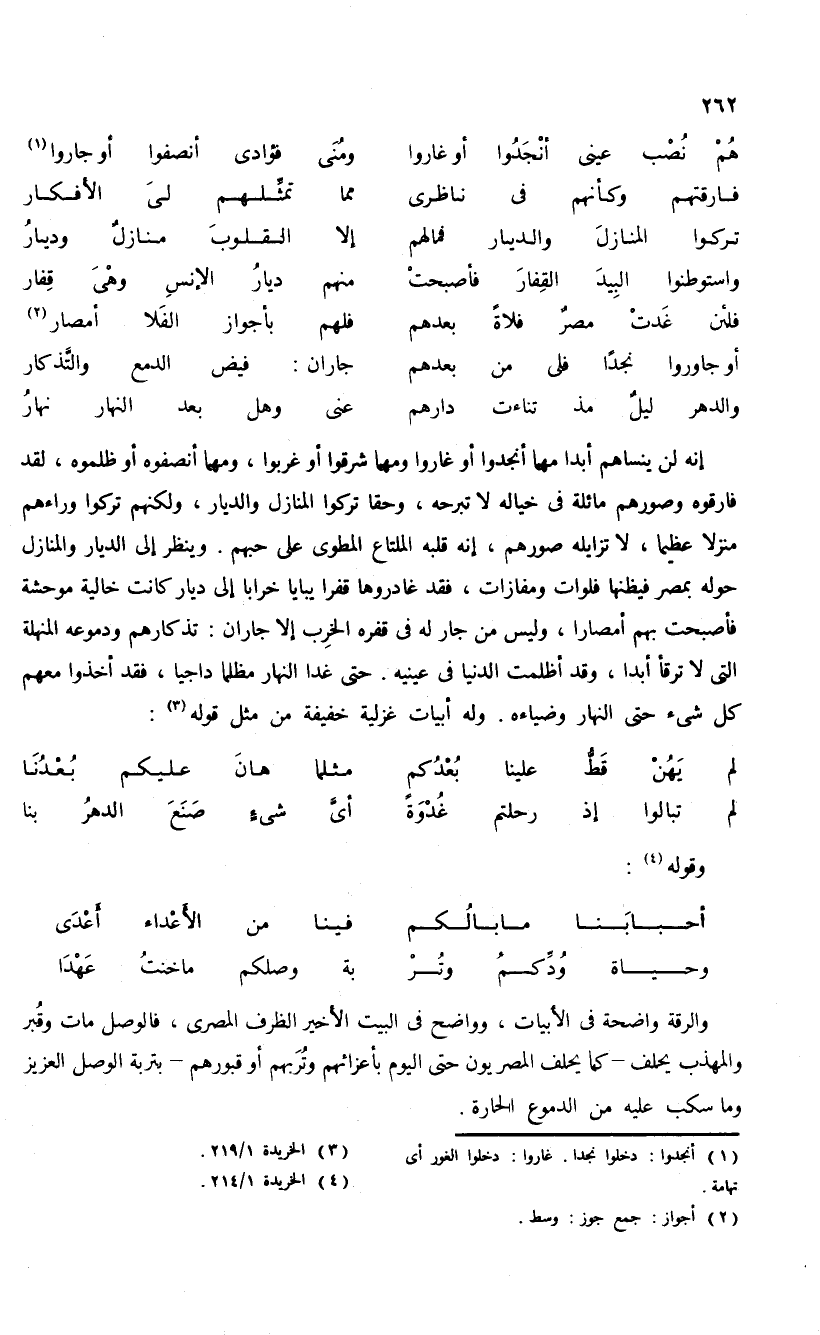 ٢٦٢
هُمْ نُصْب عينى أنْجَدُوا أو غاروا ومُنَى فؤادى أنصفوا أو جاروا(١)
فـارقتهم وكـأنهم فى نـاظرى مما تمثِّـلـهـم لىَ الأفـكـار
تـركـوا المنازلَ والـديـار فمالهم إلا القـلـوبَ منـازلٌ وديـارُ
واستوطنوا البِيدَ القِفارَ فأصبحتْ منهم ديارُ الإنسِ وهْىَ قِفار
فلئن غَدتْ مصرٌ فلاةً بعدهم فلهم بأجواز الفَلا أمصار(٢)
أو جاوروا نجدًا فلى من بعدهم جاران : فيض الدمع والتَّذكار
والدهر ليلٌ مذ تناءت دارهم عنى وهل بعد النهار نهارُ
إنه لن ينساهم أبدا مهما أنجدوا أو غاروا ومهما شرقوا أو غربوا ، ومهما أنصفوه أو ظلموه ، لقد
فارقوه وصورهم ماثلة فى خياله لا تبرحه ، وحقا تركوا المنازل والديار ، ولكنهم تركوا وراءهم
منزلا عظيما ، لا تزايله صورهم ، إنه قلبه الملتاع المطوى على حبهم . وينظر إلى الديار والمنازل
حوله بمصر فيظنها فلوات ومفازات ، فقد غادروها قفرا يبابا خرابا إلى ديار كانت خالية موحشة
فأصبحت بهم أمصارا ، وليس من جار له فى قفره الخرِب إلا جاران : تذكارهم ودموعه المنهلة
التى لا ترقأ أبدا ، وقد أظلمت الدنيا فى عينيه . حتى غدا النهار مظلما داجيا ، فقد أخذوا معهم
كل شىء حتى النهار وضياءه . وله أبيات غزلية خفيفة من مثل قوله(٣) :
لم يَهُنْ قَطُّ علينا بُعْدُكم مـثـلما هـانَ عـليـكـم بُـعْـدُنَـا
لم تبالوا إذ رحلتم غُدْوَةً أىَّ شىءٍ صَنَعَ الدهرُ بنا
وقوله(٤) :
أحـبـابَـنـا مـابـالُـكـم فـيـنـا من الأَعْداء أَعْدَى
وحـيـاة وُدِّكـمُ وتُـرْ بة وصلكم ماخنتُ عَهْدَا
والرقة واضحة فى الأبيات ، وواضح فى البيت الأخير الظرف المصرى ، فالوصل مات وقُبر
والمهذب يحلف – كما يحلف المصريون حتى اليوم بأعزائهم وتُرَبهم أو قبورهم – بتربة الوصل العزيز
وما سكب عليه من الدموع الحارة .
(١) أنجدوا : دخلوا نجدا . غاروا : دخلوا الغور أى
تهامة .
(٢) أجواز : جمع جوز : وسط .
(٣) الخريدة ٢١٩/١ .
(٤) الخريدة ٢١٤/١ .